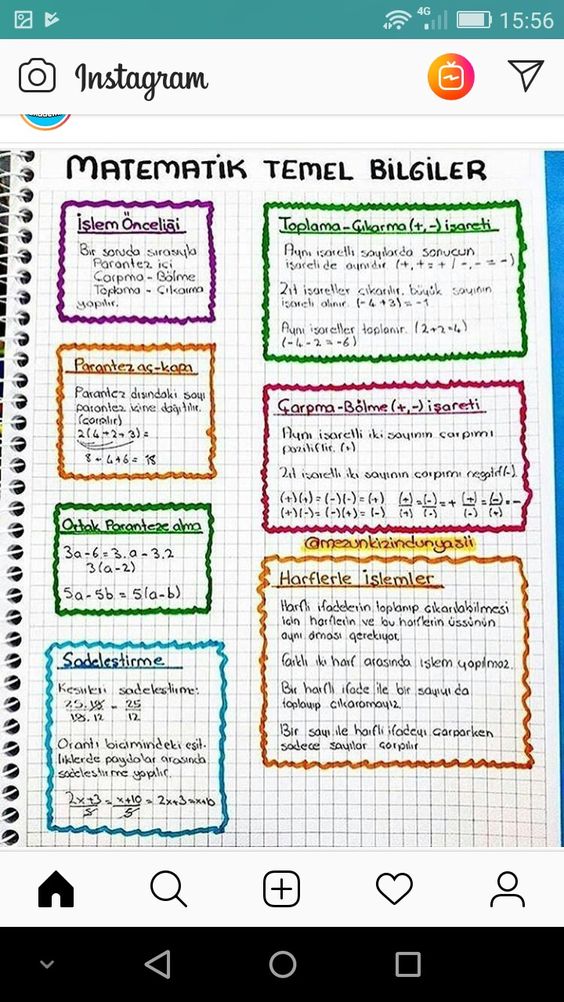 4G 15:56
Instagram
MATEMATİK TEMEL BİLGİLER
İşlem Önceliği
Bir soruda sırasıyla
Parantez içi
Çarpma - Bölme
Toplama - Çıkarma
yapılır.
Parantez aç-kapa
Parantez dışındaki sayı
parantez içine dağıtılır.
(çarpılır)
2(4+2+3)=
8+4+6=18
Ortak Paranteze alma
3a-6=3.a-3.2
3(a-2)
5a-5b=5(a-b)
Sadeleştirme
Kesirleri sadeleştirme:
25.18 = 25
18.12 12
Orantı biçimindeki eşit-
liklerde paydalar arasında
sadeleştirme yapılır.
2x+3 = x+10 = 2x+3=x+10
5 5
Toplama-Çıkarma(+,-) işareti
Aynı işaretli sayılarda sonucun
işareti de aynıdır (+,+=+/-,-=-)
Zıt işaretler çıkarılır, büyük sayının
işareti alınır. (-4+3)=-1
Aynı işaretler toplanır. (2+2=4)
(-4-2=-6)
Çarpma-Bölme(+,-) işareti
Aynı işaretli iki sayının çarpımı
pozitiftir. (+)
Zıt işaretli iki sayının çarpımı negatif(-).
(+)(+)=(-)(-)=(+) (+) = (-) = + (+) = (-) = -
(+)(-)=(-)(+)=(-) (+) (-) (-) (+)
@mezunkizindunyasii
Harflerle İşlemler
Harfli ifadelerin toplanıp çıkarılabilmesi
için harflerin ve bu harflerin üssünün
aynı olması gerekiyor.
farklı iki harf arasında işlem yapılmaz.
Bir harfli ifade ile bir sayıyı da
toplayıp çıkaramayız.
Bir sayı ile harfli ifadeyi çarparken
sadece sayılar çarpılır